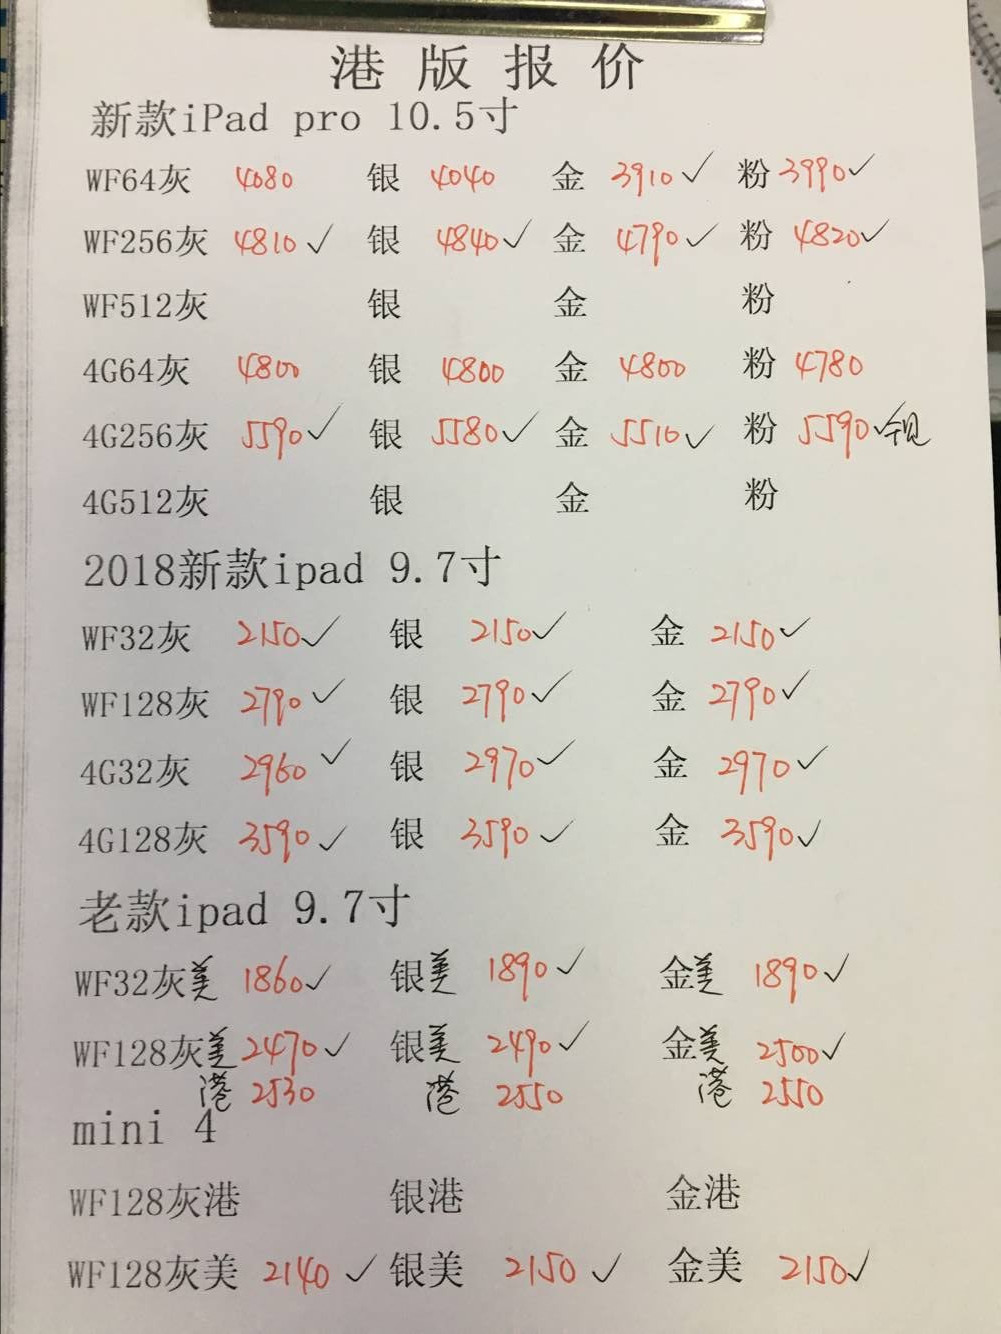 港版报价
新款iPad pro 10.5寸
WF64灰 4080 银 4040 金 3910 ✓ 粉 3990 ✓
WF256灰 4810 ✓ 银 4840 ✓ 金 4790 ✓ 粉 4820 ✓
WF512灰 银 金 粉
4G64灰 4800 银 4800 金 4800 粉 4780
4G256灰 5590 ✓ 银 5580 ✓ 金 5510 ✓ 粉 5590 ✓
4G512灰 银 金 粉
2018新款ipad 9.7寸
WF32灰 2150 ✓ 银 2150 ✓ 金 2150 ✓
WF128灰 2790 ✓ 银 2790 ✓ 金 2790 ✓
4G32灰 2960 ✓ 银 2970 ✓ 金 2970 ✓
4G128灰 3590 ✓ 银 3590 ✓ 金 3590 ✓
老款ipad 9.7寸
WF32灰美 1860 ✓ 银美 1890 ✓ 金美 1890 ✓
WF128灰美 2470 ✓ 银美 2490 ✓ 金美 2500 ✓
港 2530 港 2550 港 2550
mini 4
WF128灰港 银港 金港
WF128灰美 2140 ✓ 银美 2150 ✓ 金美 2150 ✓